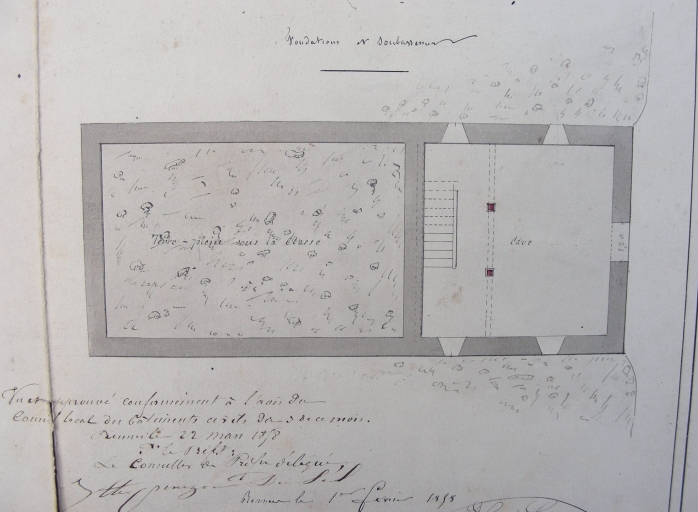 Fondations et Soubassement
Terre-plein sous la Classe
Cave
1,20
Vu et approuvé conformément à l'avis du
Conseil local des bâtiments civils du 3 de ce mois.
Rennes le 22 mars 1858
Le Conseiller de Préfecture délégué,
Rennes le 1er février 1858